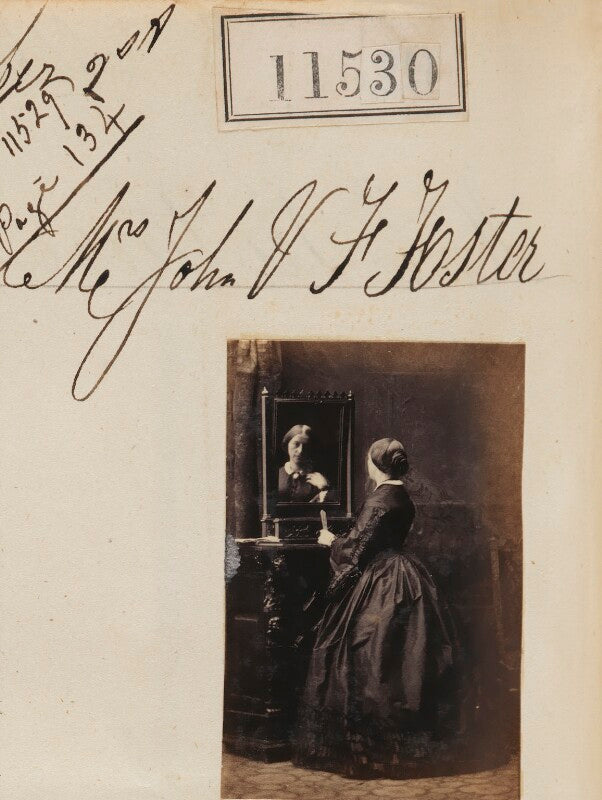 2nd
11529
Page 134
11530
Mrs John V F Foster